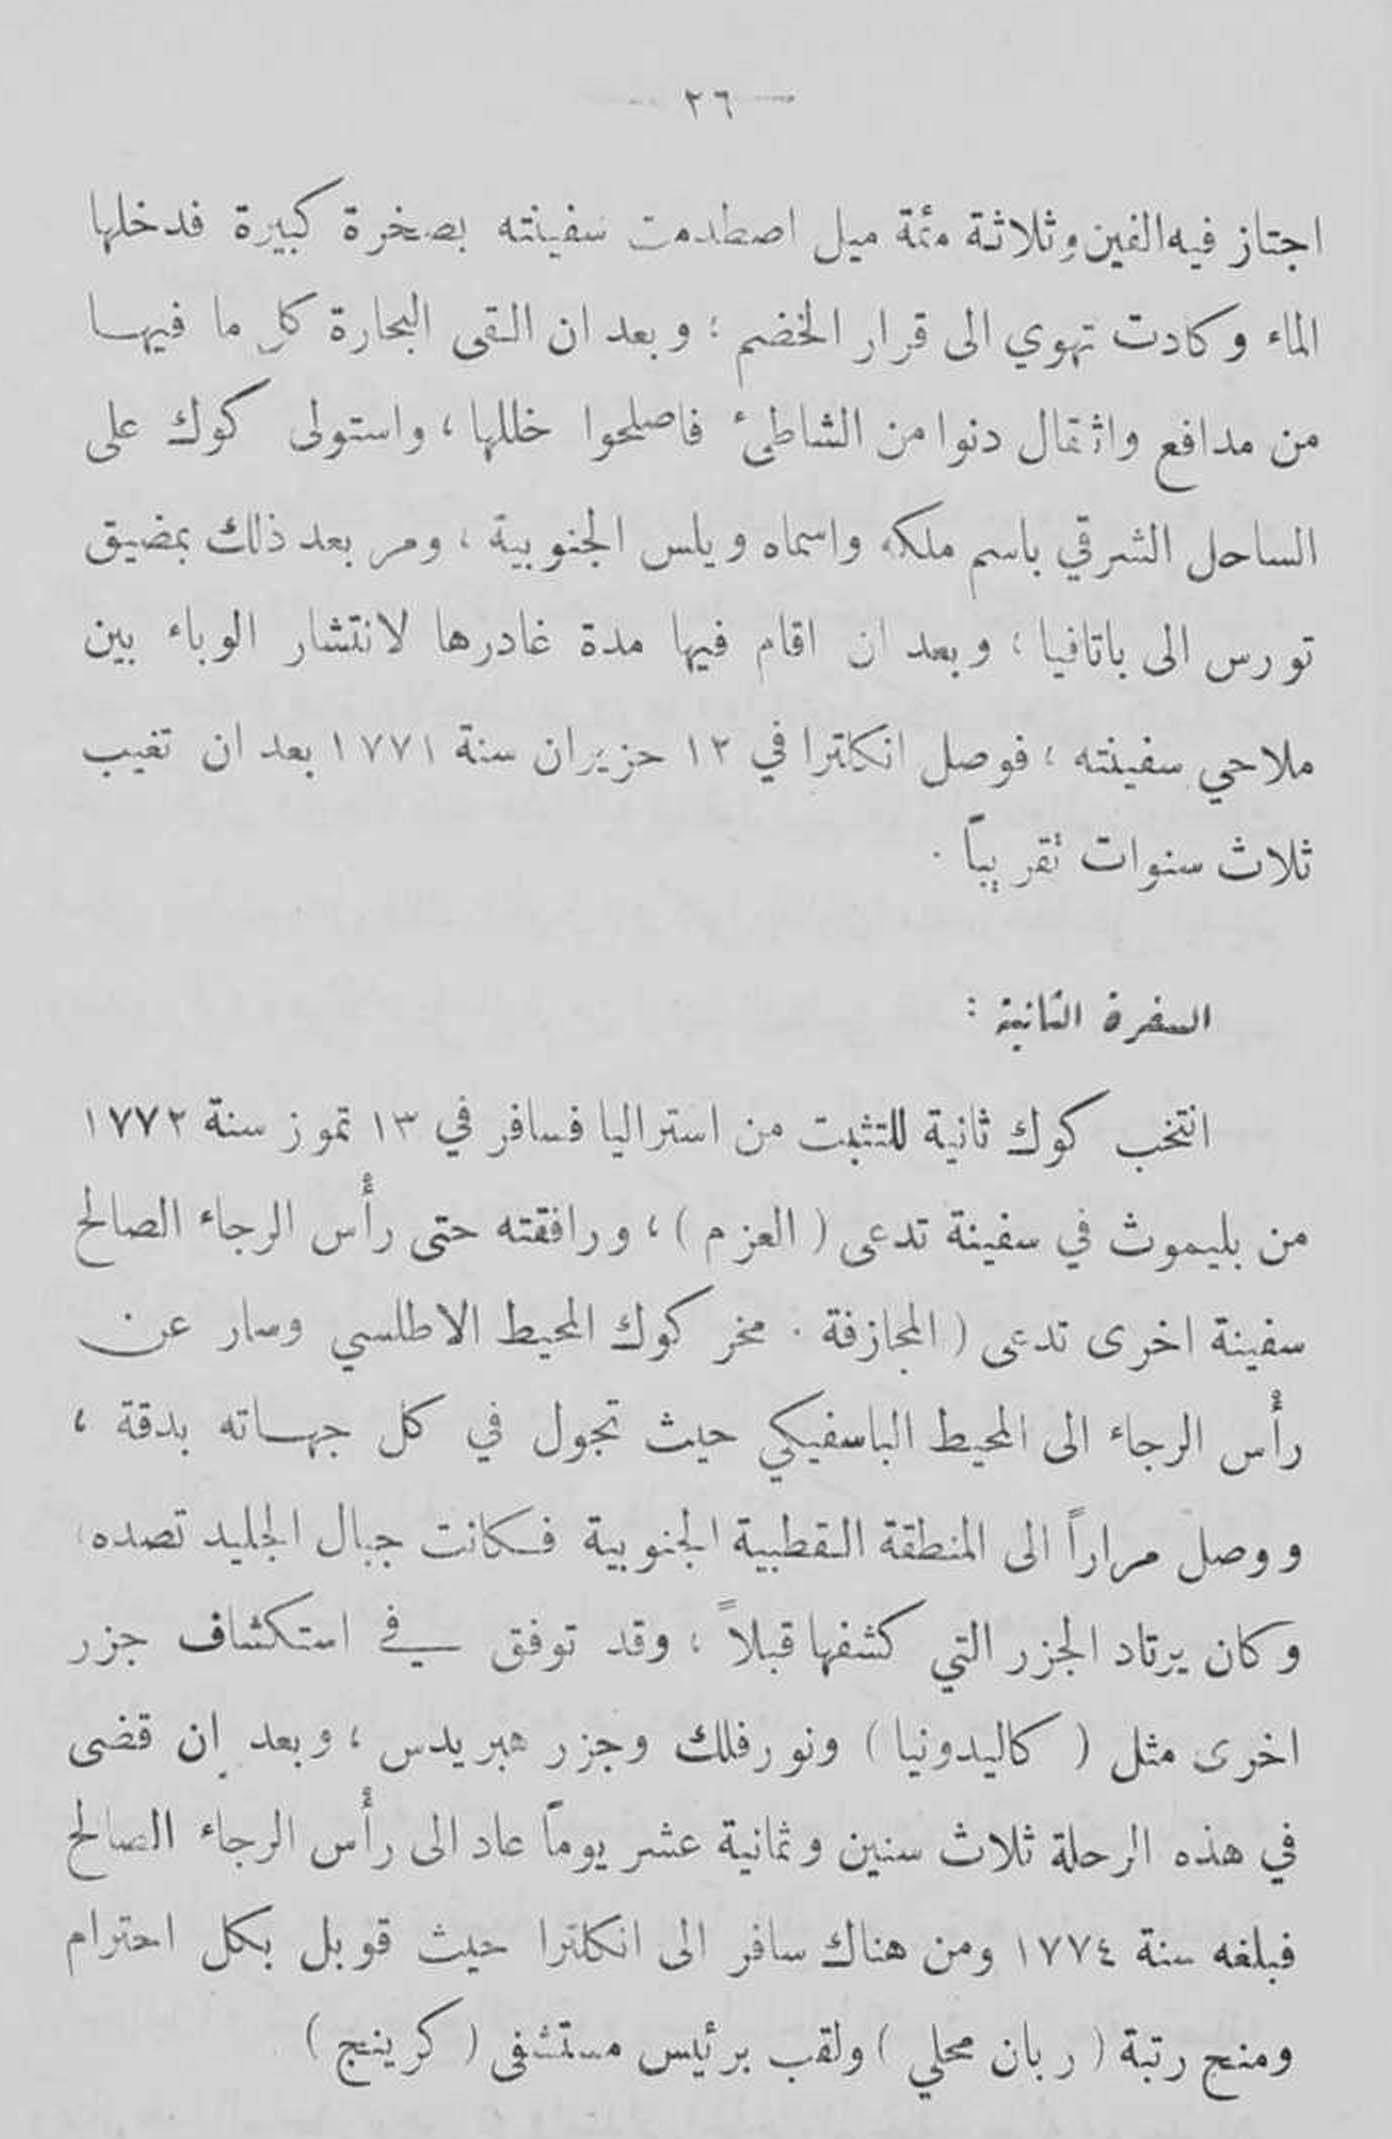 — ٢٦ —
اجتاز فيه الفين وثلاثة مئة ميل اصطدمت سفينته بصخرة كبيرة فدخلها
الماء وكادت تهوي الى قرار الخضم ؛ وبعد ان القى البحارة كل ما فيها
من مدافع واثقال دنوا من الشاطئ فاصلحوا خللها ، واستولى كوك على
الساحل الشرقي باسم ملكه واسماه ويلس الجنوبية ، ومر بعد ذلك بمضيق
تورس الى باتافيا ؛ وبعد ان اقام فيها مدة غادرها لانتشار الوباء بين
ملاحي سفينته ؛ فوصل انكلترا في ١٢ حزيران سنة ١٧٧١ بعد ان تغيب
ثلاث سنوات تقريباً .
السفرة الثانية :
انتخب كوك ثانية للتثبت من استراليا فسافر في ١٣ تموز سنة ١٧٧٢
من بليموث في سفينة تدعى ( العزم ) ، ورافقته حتى رأس الرجاء الصالح
سفينة اخرى تدعى ( المجازفة . مخر كوك المحيط الاطلسي وسار عن
رأس الرجاء الى المحيط الباسفيكي حيث تجول في كل جهاته بدقة ،
ووصل مراراً الى المنطقة القطبية الجنوبية فكانت جبال الجليد تصده
وكان يرتاد الجزر التي كشفها قبلاً ؛ وقد توفق في استكشاف جزر
اخرى مثل ( كاليدونيا ) ونورفلك وجزر هبريدس ؛ وبعد ان قضى
في هذه الرحلة ثلاث سنين وثمانية عشر يوماً عاد الى رأس الرجاء الصالح
فبلغه سنة ١٧٧٤ ومن هناك سافر الى انكلترا حيث قوبل بكل احترام
ومنح رتبة ( ربان محلي ) ولقب برئيس مستشفى ( كرينج )